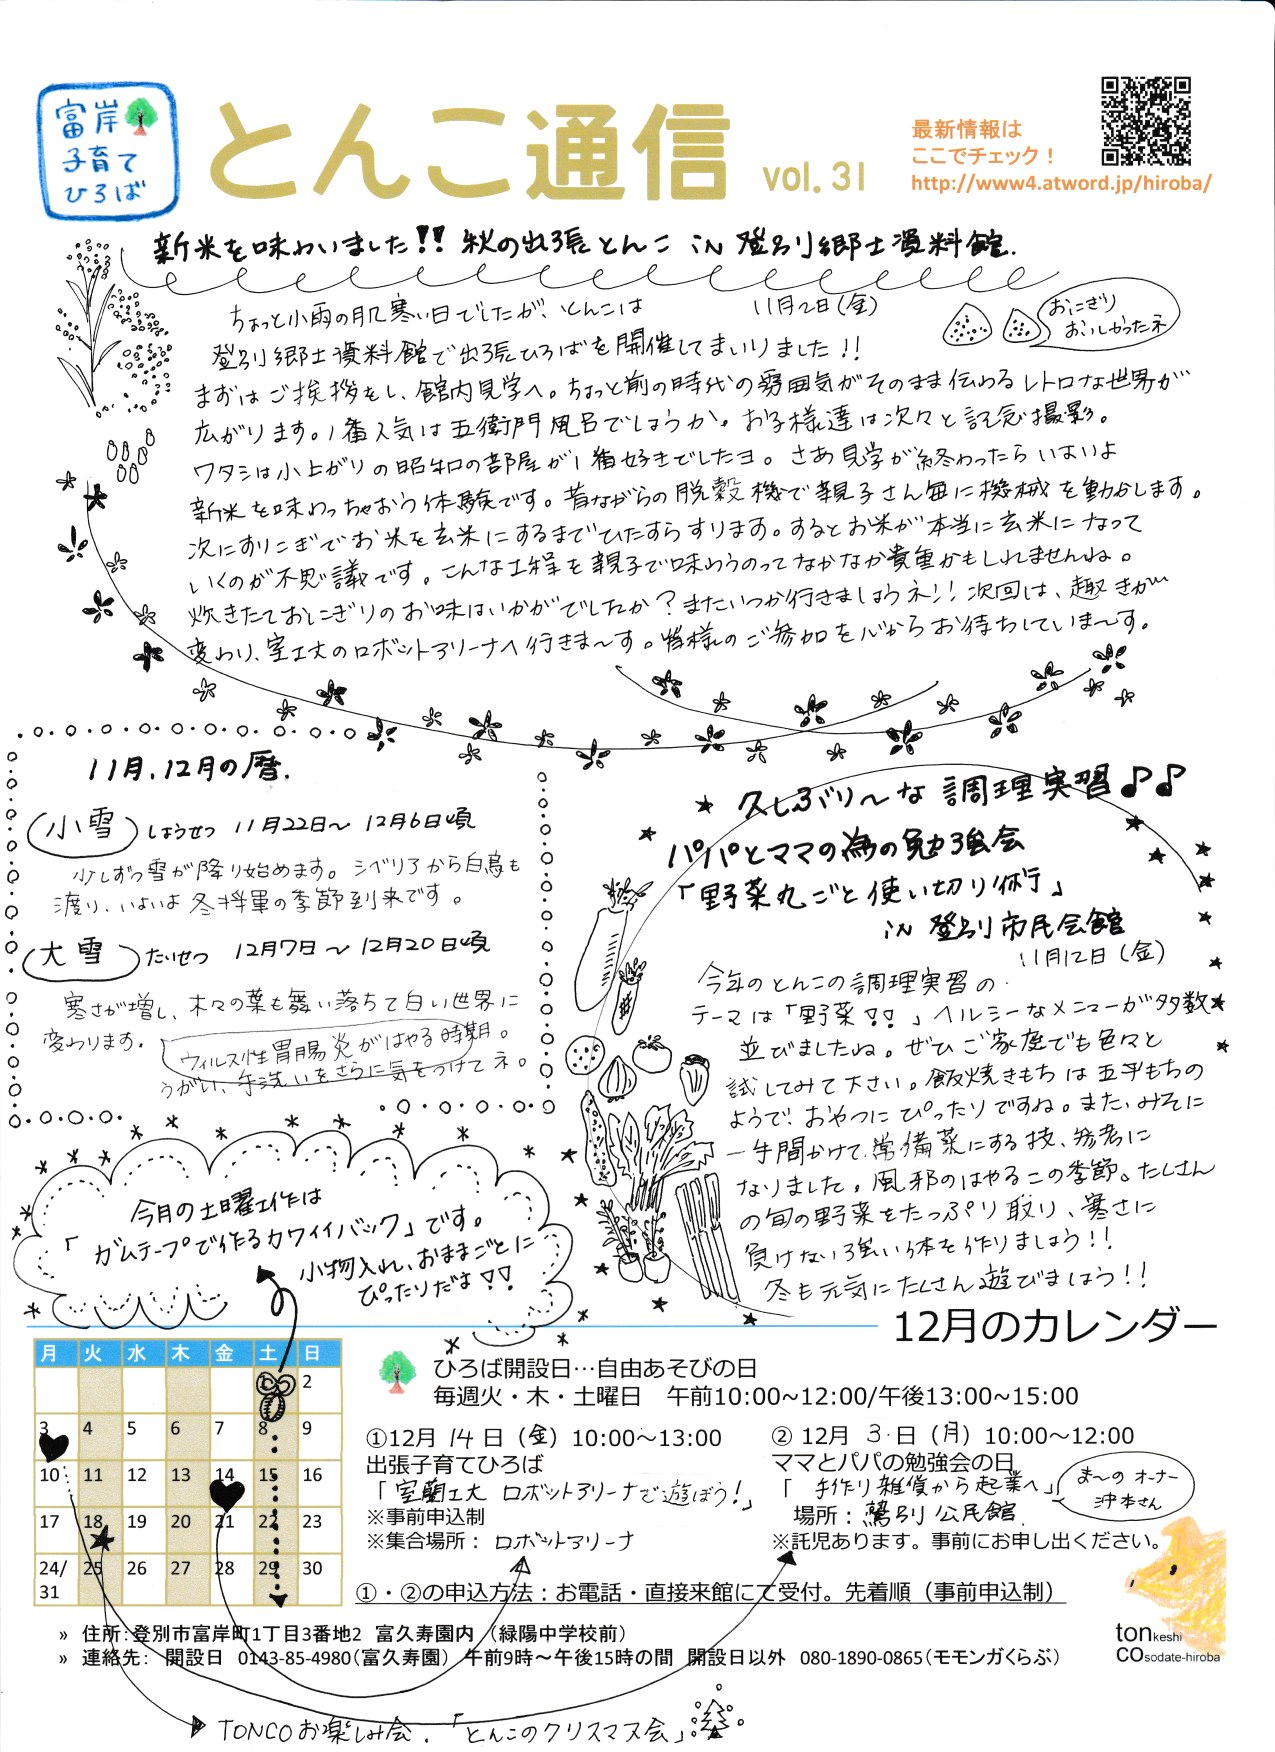 富岸
子育て
ひろば
とんこ通信 vol.31
最新情報は
ここでチェック！
http://www4.atword.jp/hiroba/
新米を味わいました!! 秋の出張とんこ in 登別郷土資料館.
11月2日(金)
おにぎり
おいしかったネ
ちょっと小雨の肌寒い日でしたが、とんこは
登別郷土資料館で出張ひろばを開催してまいりました!!
まずはご挨拶をし、館内見学へ。ちょっと前の時代の雰囲気がそのまま伝わるレトロな世界が
広がります。1番人気は五衛門風呂でしょうか。お子様達は次々と記念撮影。
ワタシは小上がりの昭和の部屋が1番好きでしたヨ。さあ見学が終わったらいよいよ
新米を味わっちゃおう体験です。昔ながらの脱穀機で親子さん毎に機械を動かします。
次にすりこぎでお米を玄米にするまでひたすらすります。するとお米が本当に玄米になって
いくのが不思議です。こんな工程を親子で味わうのってなかなか貴重かもしれませんね。
炊きたておにぎりのお味はいかがでしたか？またいつか行きましょうネ!! 次回は、趣きが
変わり、室工大のロボットアリーナへ行きま〜す。皆様のご参加を心からお待ちしていま〜す。
11月,12月の暦.
小雪 しょうせつ 11月22日〜 12月6日頃
少しずつ雪が降り始めます。シベリアから白鳥も
渡り、いよいよ冬将軍の季節到来です。
大雪 たいせつ 12月7日〜12月20日頃
寒さが増し、木々の葉も舞い落ちて白い世界に
変わります。
ウィルス性胃腸炎がはやる時期。
うがい、手洗いをさらに気をつけてネ。
久しぶり〜な調理実習♪♪
パパとママの為の勉強会
「野菜丸ごと使い切り術」
in 登別市民会館
11月12日(金)
今年のとんこの調理実習の
テーマは「野菜!!」ヘルシーなメニューが多数
並びましたね。ぜひご家庭でも色々と
試してみて下さい。飯焼きもちは五平もちの
ようで、おやつにぴったりですね。また、みそに
一手間かけて常備菜にする技、参考に
なりました。風邪のはやるこの季節。たくさん
の旬の野菜をたっぷり取り、寒さに
負けない強い体を作りましょう!!
冬も元気にたくさん遊びましょう!!
今月の土曜工作は
「ガムテープで作るカワイイバック」です。
小物入れ、おままごとに
ぴったりだよ!!
12月のカレンダー
月 火 水 木 金 土 日
1 2
3 4 5 6 7 8 9
10 11 12 13 14 15 16
17 18 19 20 21 22 23
24/31 25 26 27 28 29 30
ひろば開設日…自由あそびの日
毎週火・木・土曜日 午前10:00~12:00/午後13:00~15:00
①12月 14 日（金）10:00~13:00
出張子育てひろば
「室蘭工大 ロボットアリーナで遊ぼう!」
※事前申込制
※集合場所： ロボットアリーナ
② 12月 3 日（月）10:00~12:00
ママとパパの勉強会の日
「 手作り雑貨から起業へ」
ま〜の オーナー
沖本さん
場所：鷲別公民館
※託児あります。事前にお申し出ください。
①・②の申込方法：お電話・直接来館にて受付。先着順（事前申込制）
» 住所：登別市富岸町1丁目3番地2 富久寿園内（緑陽中学校前）
» 連絡先： 開設日 0143-85-4980（富久寿園） 午前9時～午後15時の間 開設日以外 080-1890-0865（モモンガくらぶ）
tonkeshi
COsodate-hiroba
TONCOお楽しみ会.「とんこのクリスマス会」